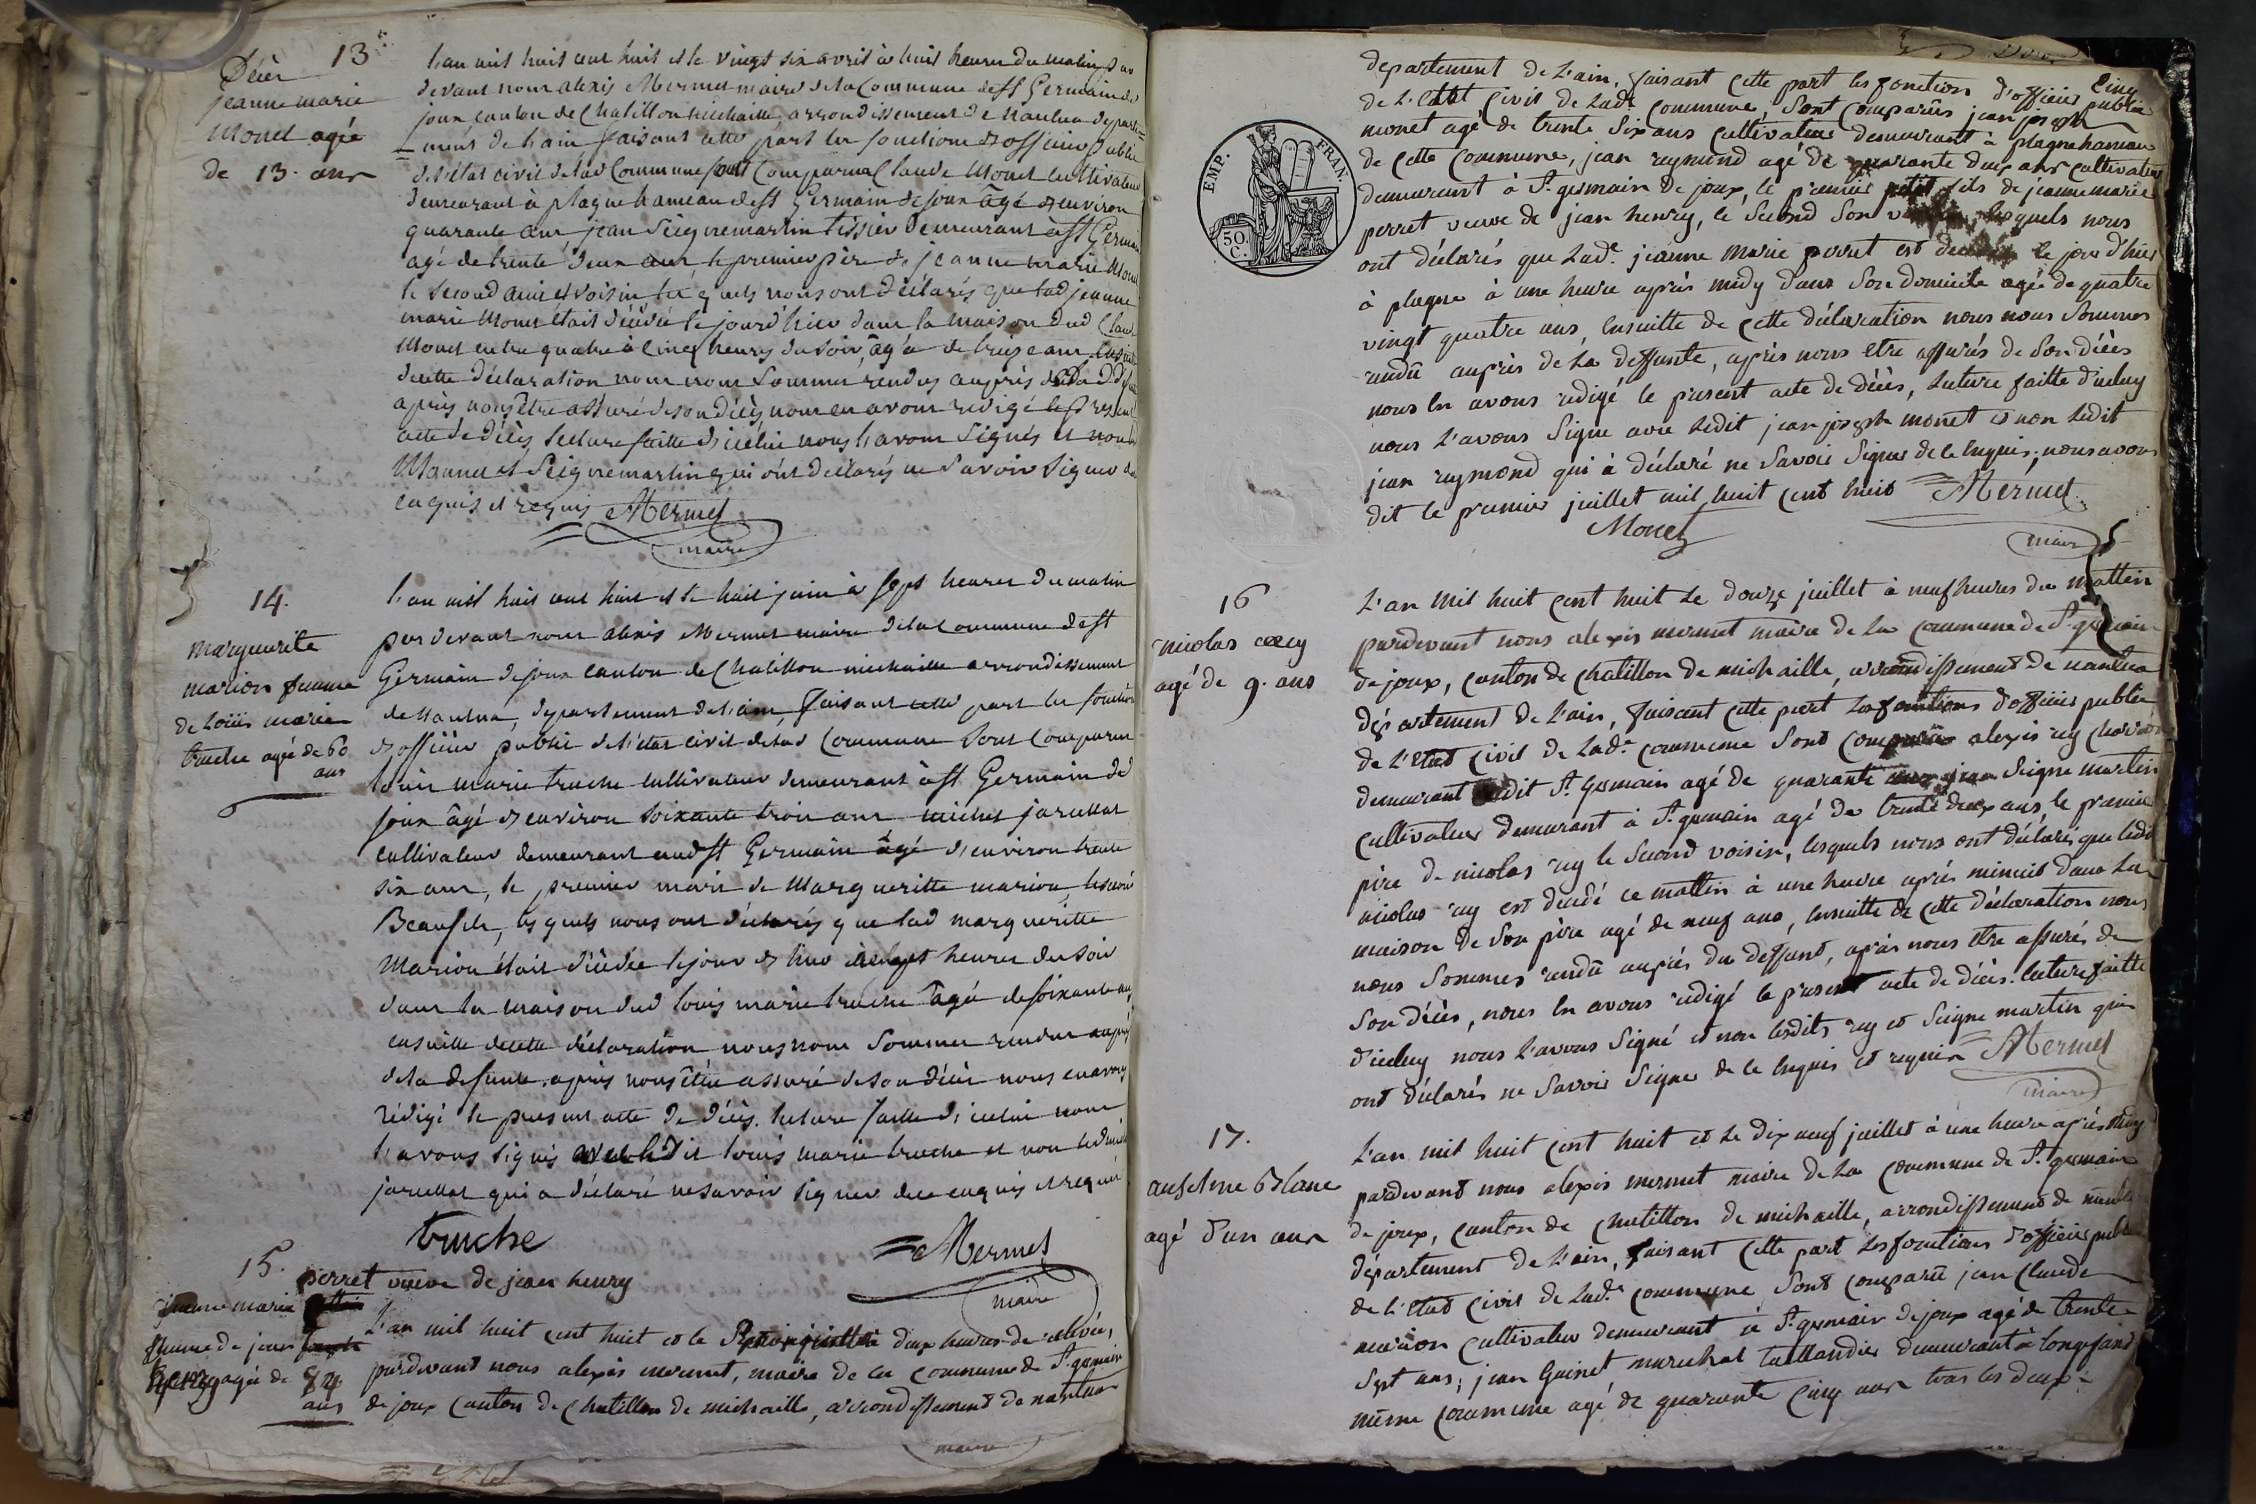 13
Décès
jeanne marie
Monet agée
de 13. ans
L'an mil huit cent huit et le vingt six avril à huit heures du matin par
devant nous alexis Mermet maire de la Commune de St Germain de
joux canton de Chatillon michaille arrondissement de Nantua departe=
=ment de l'ain faisant cette part les fonctions d'officier public
de l'état civil de lad Commune sont Comparus Claude Monet cultivateur
demeurant à plagne hameau de St Germain de joux âgé d'environ
quarante ans jean Seignemartin tissier demeurant à St Germain
agé de trente deux ans le premier père de jeanne marie Monet
le second ami et voisin lesquels nous ont déclarés que lad jeanne
marie Monet était décédée le jour d'hier dans la maison dud Claude
Monet entre quatre à cinq heures du soir, âgée de treize ans
de cette déclaration nous nous sommes rendus auprès de la
après nous être assuré de son décès nous en avons redigé le present
acte de décès, lecture faitte d'icelui nous l'avons signés et non les
Monnet et Seignemartin qui ont déclarés ne savoir signer de
ce enquis et requis Mermet
maire
14.
marguerite
marion femme
de Loüis marie
truche agée de 60
ans
L'an mil huit cent huit et le huit juin à sept heures du matin
par devant nous alexis Mermet maire de la Commune de St
Germain de joux canton de Chatillon michaille arrondissement
de Nantua, departement de l'ain, faisant cette part les fonctions
d'officier public de l'état civil de lad Commune sont comparus
Louis marie truche cultivateur demeurant à St Germain de
joux âgé d'environ soixante trois ans michel
cultivateur demeurant aud St Germain âgé d'environ trente
six ans, le premier mari de Margueritte marion, le second
Beaufils, lesquels nous ont déclarés que lad margueritte
Marion était décédée le jour d'hier à sept heures du soir
dans la maison dud louis marie truche âgée de soixante ans,
ensuitte de cette déclaration nous nous sommes rendus auprès
de la defunte, après nous être assuré de son décès nous en avons
rédigé le present acte de décès. lecture faitte d'icelui nous
l'avons signés avec ledit louis marie truche et non led michel
qui a déclaré ne savoir signer de ce enquis et requis
truche
Mermet
maire
15.
perret veuve de jean henry
jeanne marie
femme de jean
henry agée de 84
ans
L'an mil huit cent huit et le premier juillet à deux heures de relevée,
pardevant nous alexis mermet, maire de la commune de St. germain
de joux canton de Chatillon de michaille, arrondissement de nantua
maire
cinq
departement de L'ain, faisant cette part les fonction d'officier public
de L'Etat Civil de Lade. Commune, sont comparûs jean joseph
monet agé de trente six ans cultivateur demeurant à plagne hameau
de cette Commune, jean raymond agé de quarante deux ans cultivateur
demeurant à St. germain de joux, le premier petit fils de jeanne marie
perret veuve de jean henry, le second son lesquels nous
ont déclarés que Lade. jeanne marie perret est le jour d'hier
à plagne à une heure après midy dans son domicile agée de quatre
vingt quatre ans, ensuitte de cette déclaration nous nous sommes
rendû auprès de La deffunte, après nous etre assurés de son décès
nous en avons rédigé le présent acte de décès, lecture faitte d'iceluy
nous L'avons signé avec Ledit jean joseph monet et non Ledit
jean raymond qui à déclaré ne savoir signer de ce enquis; nous avons
dit le premier juillet mil huit cent huit Mermet
Monet
maire
EMP. FRAN.
50. C.
16
nicolas rey
agé de 9. ans
L'an mil huit cent huit le douze juillet à neuf heures du mattin
pardevant nous alexis mermet maire de La commune de St. germain
de joux, canton de Chatillon de michaille, arrondissement de nantua
département de L'ain, faisant cette part Les fonctions d'officier public
de L'etat civil de Lade. commune sont comparûs alexis rey
demeurant audit St. germain agé de quarante ans jean Seigne martin
cultivateur demeurant à St. germain agé de trente deux ans, le premier
père de nicolas rey le second voisin, lesquels nous ont déclaré que ledit
nicolas rey est décédé ce mattin à une heure après minuit dans La
maison de son père agé de neuf ans, ensuitte de cette déclaration nous
nous sommes rendû auprés du deffunt, après nous etre assurés de
son décès, nous en avons rédigé le présent acte de décès. lecture faitte
d'iceluy nous L'avons signé et non Lesdits rey et Seigne martin qui
ont déclarés ne savoir signer de ce enquis et requis Mermet
maire
17.
anselme Blanc
agé d'un ans
L'an mil huit cent huit et Le dix neuf juillet à une heure après midy
pardevant nous alexis mermet maire de La commune de St. germain
de joux, canton de Chatillon de michaille, arrondissement de nantua
département de L'ain, faisant cette part Les fonctions d'officier public
de L'etat civil de Lade. commune sont comparû jean Claude
marion cultivateur demeurant à St. germain de joux agé de trente
sept ans; jean Guinet, maréchal taillandier demeurant à longefand
même commune agé de quarante cinq ans tous les deux